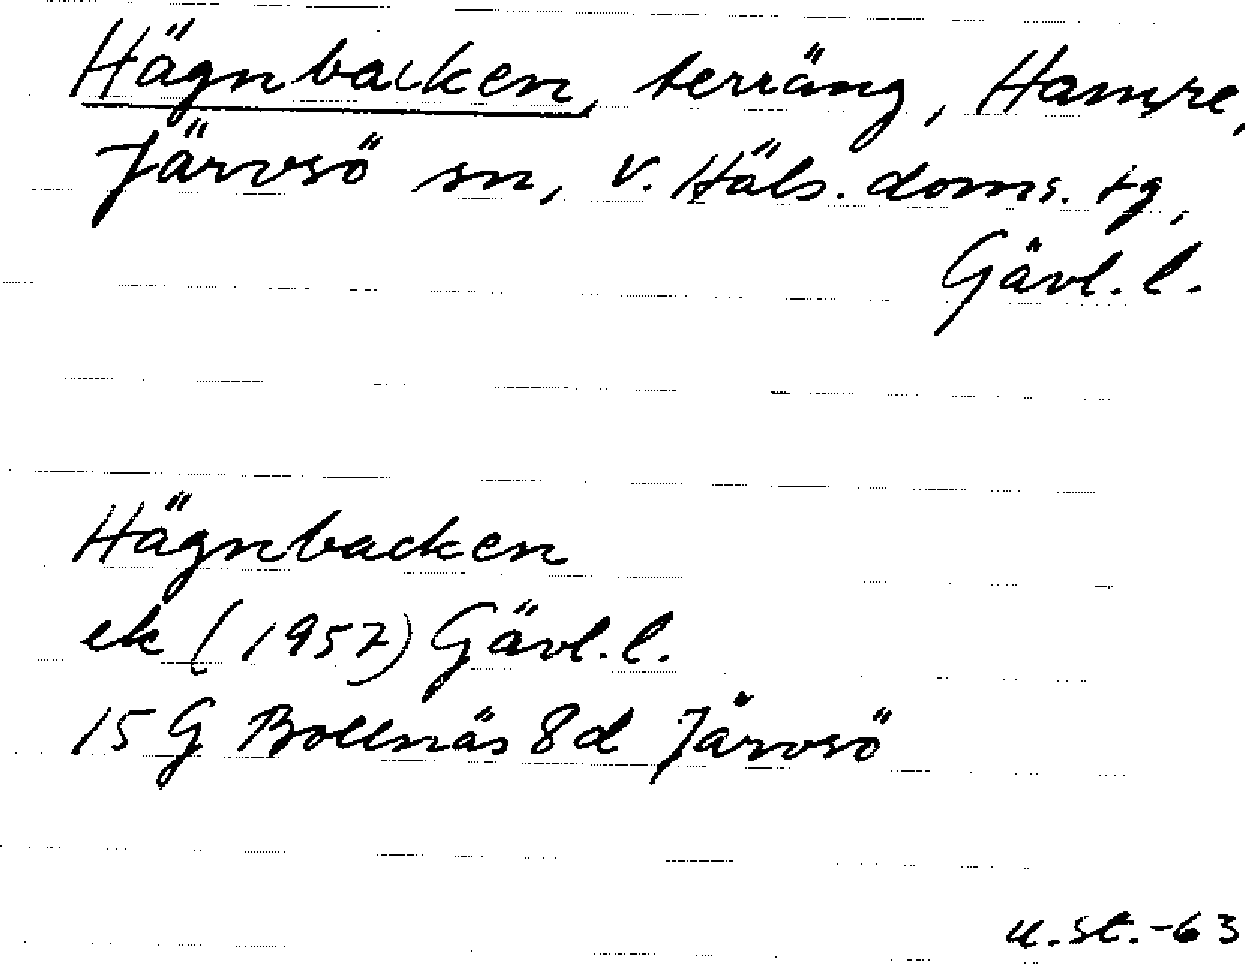 Hägnbacken, terräng, Hamre,
Järvsö sn, v. Häls. doms. tg,
Gävl. l.
Hägnbacken
ek (1957) Gävl. l.
15 G Bollnäs 8d Järvsö
u.st.-63